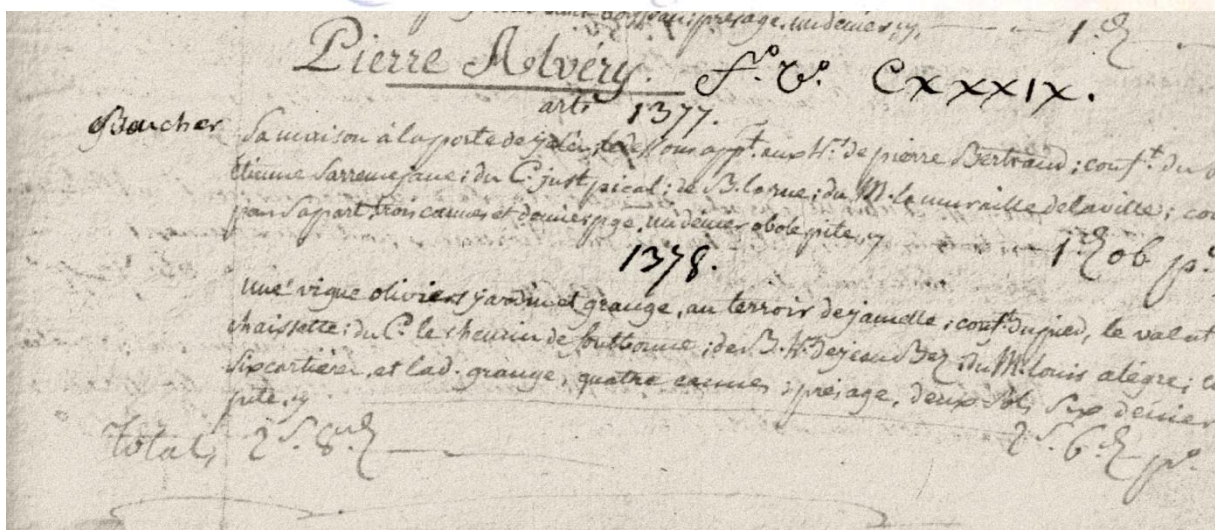 presage, un denier, 1.d
Pierre Alvéry. f.° v.° CXXXIX.
art. 1377.
Boucher
Sa maison à la porte de app.t aux h.rs de pierre Bertrand; conf.t du
étienne du C. just pical; de B. la rue; du M. la muraille de la ville; con
pan sa part, trois cannes et demie; pge, un denier obole pite, 1.d ob p.e
1378.
une vigne oliviers jardin et grange, au terroir de jamelle; conf.t du pied, le valat
chaissette; du C. le chemin de ; de B. h.rs de jean Bez, du M. louis alégre; co
six cartières, et lad. grange, quatre cannes; presage, deux sols six denier
pite, 2 s. 6 d p.e
Total, 2 s. 8 d